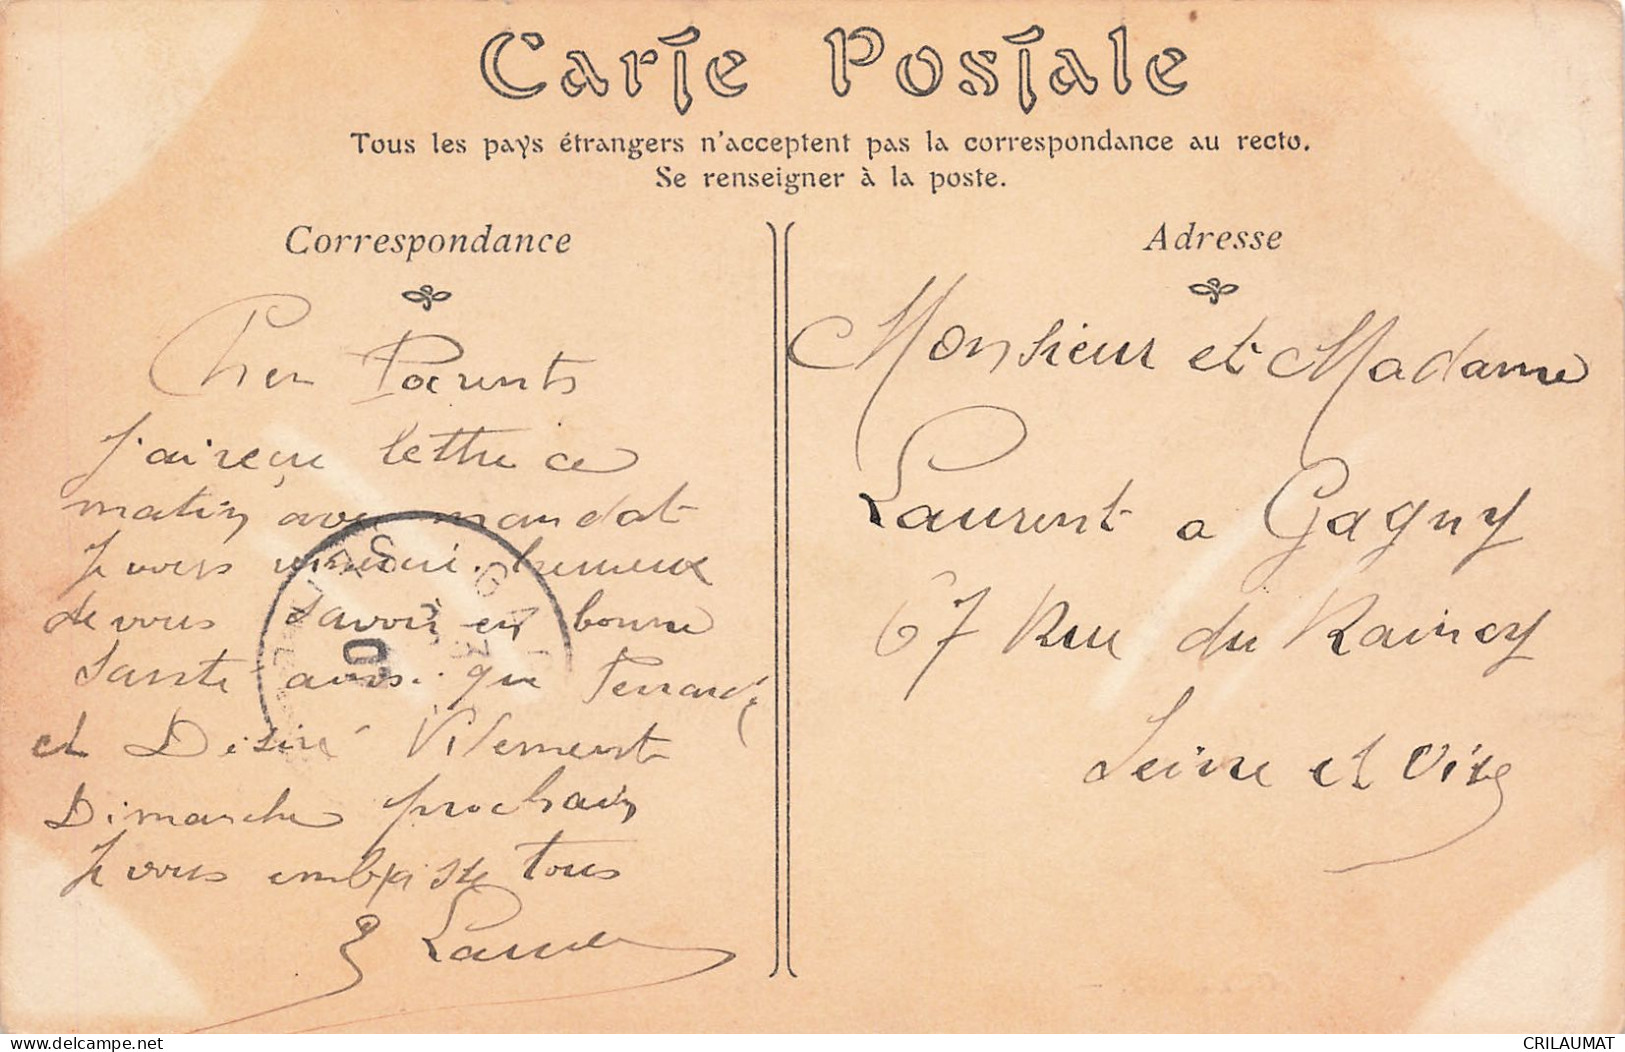 Carte Postale
Tous les pays étrangers n'acceptent pas la correspondance au recto.
Se renseigner à la poste.
Correspondance
Adresse
Cher Parents
j'ai reçu lettre ce
matin avec mandat
je vous remerci. hereux
de vous savoir en bonne
Santé aussi que
et Désiré
Dimanche prochain
je vous embrasse tous
E Laurent
Monsieur et Madame
Laurent a Gagny
67 Rue du Raincy
Seine et Oise
delcampe.net
CRILAUMAT